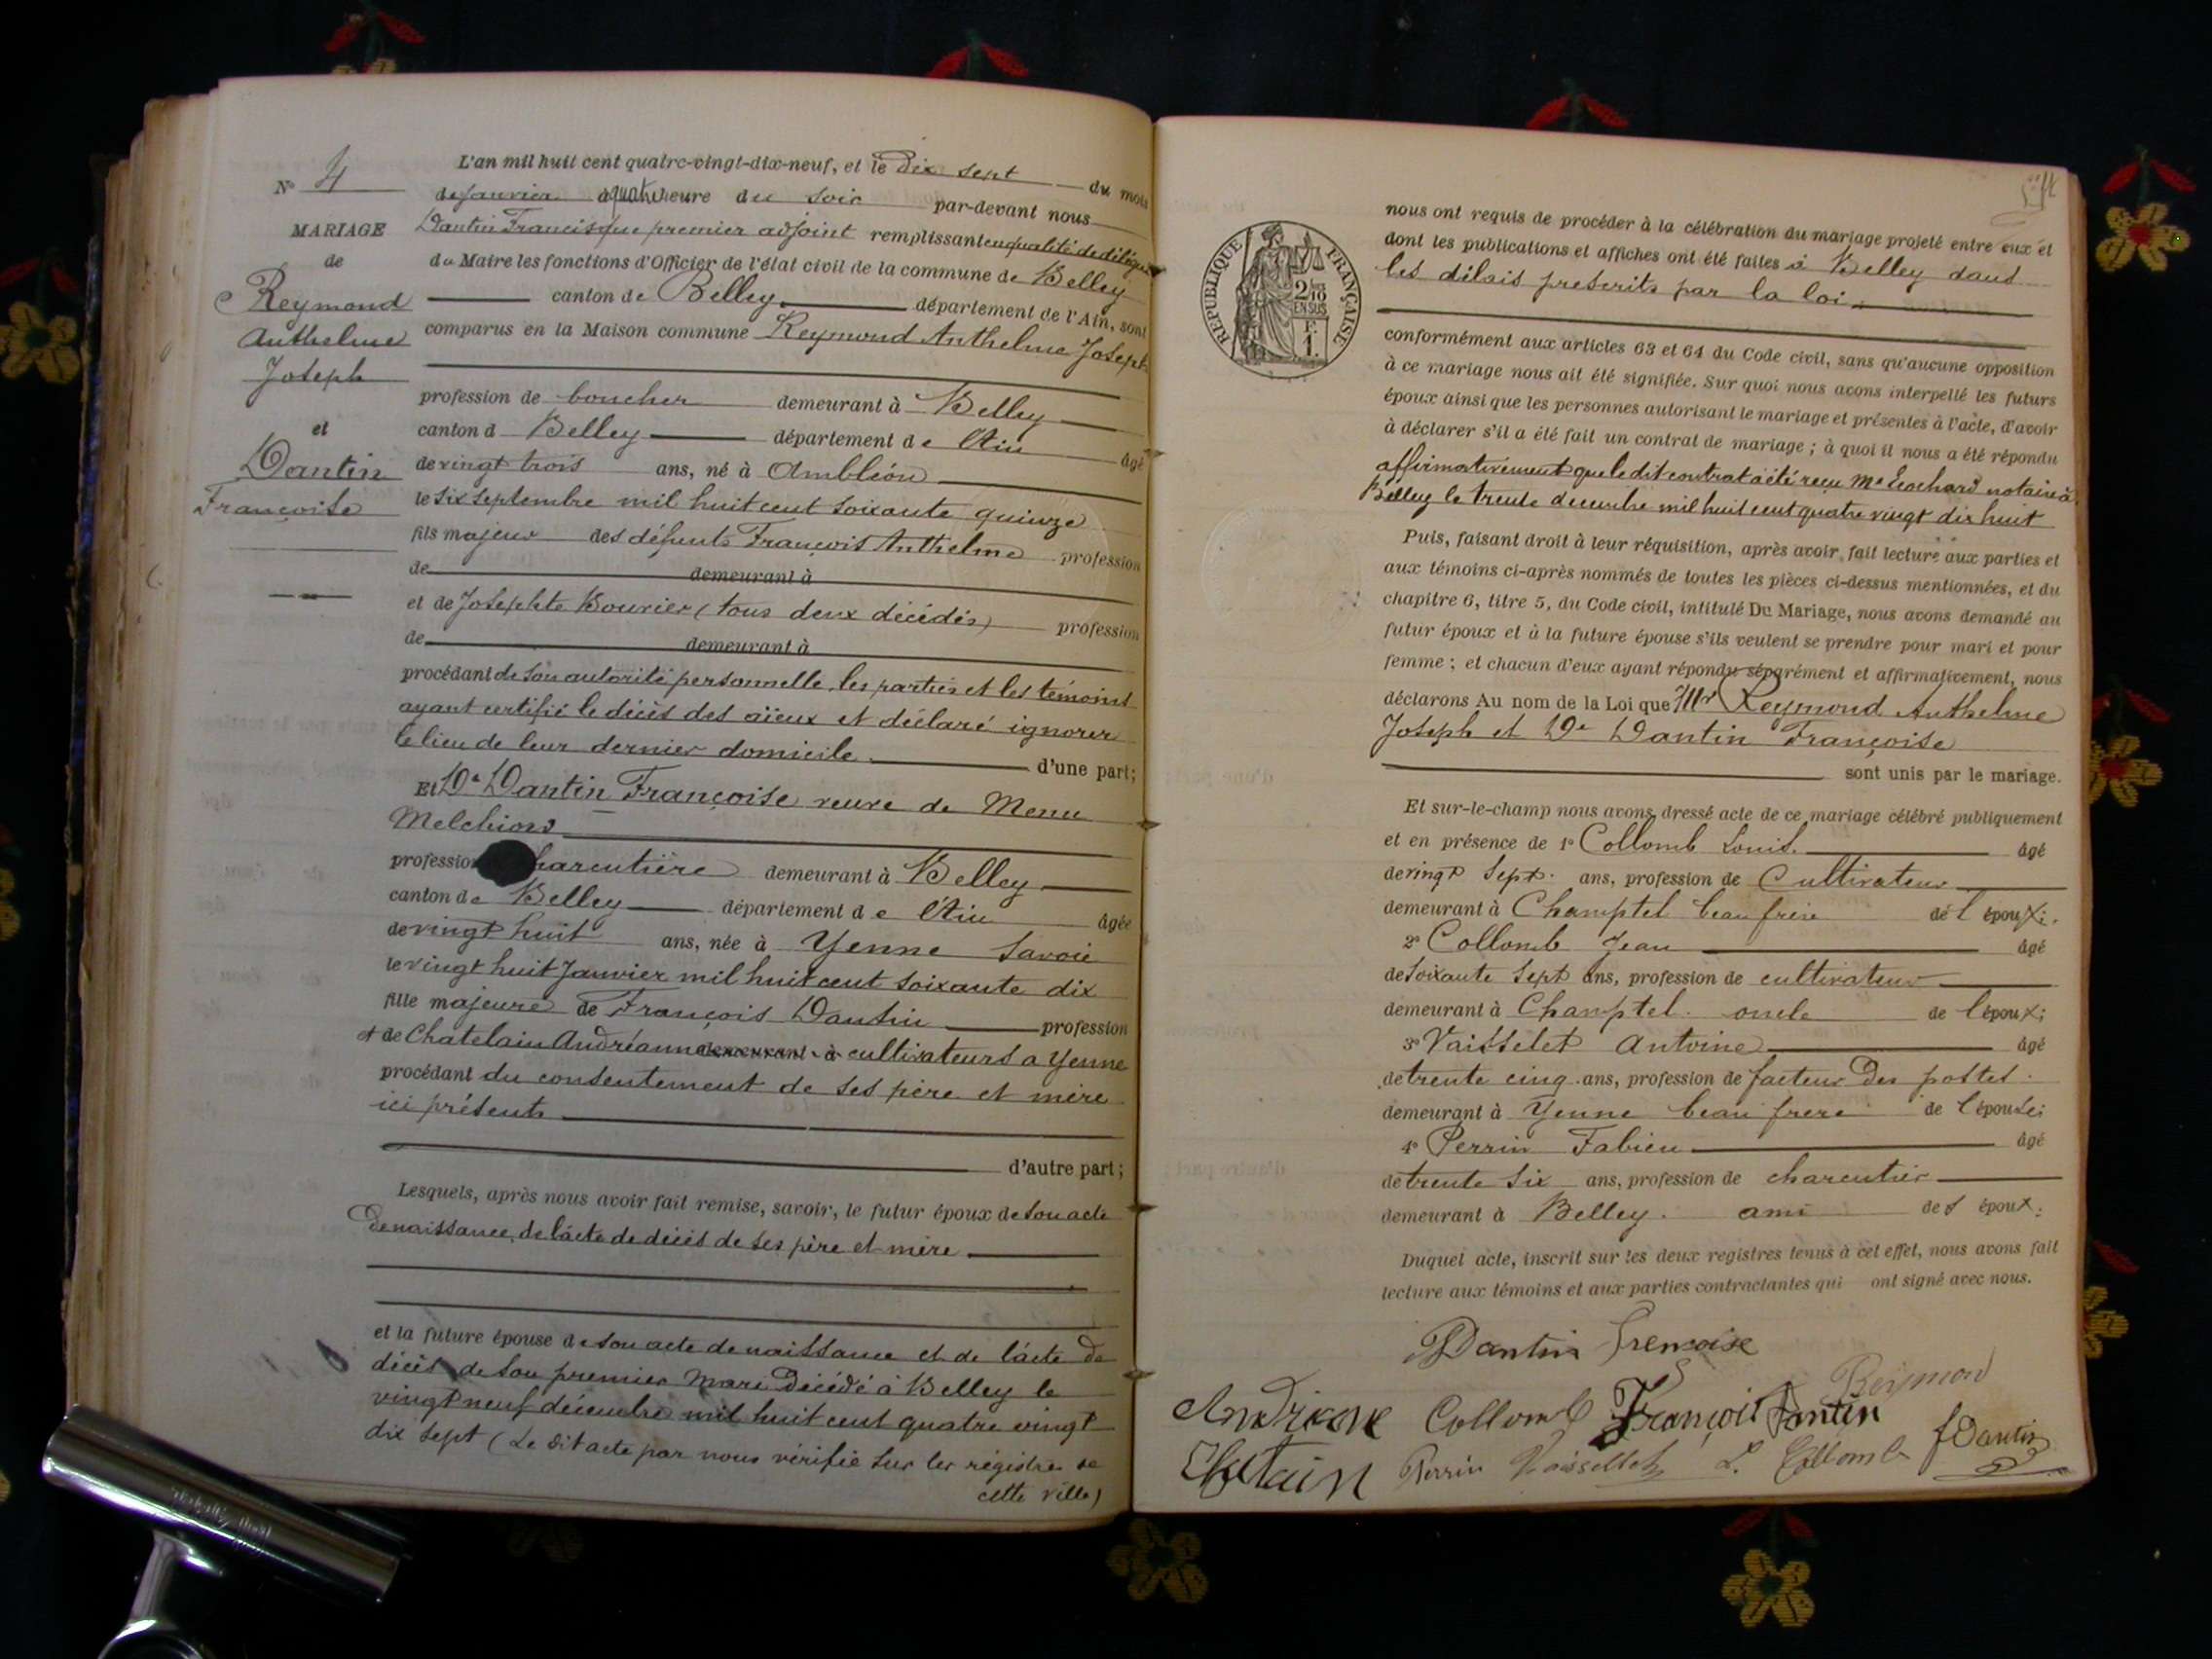 N° 4
MARIAGE
de
Reymond
Anthelme
Joseph
et
Dantin
Françoise
L'an mil huit cent quatre-vingt-dix-neuf, et le Dix sept du mois
de Janvier à quatre heure du soir par-devant nous
Dantin Francisque premier adjoint remplissant en qualité de délégué
du Maire les fonctions d'Officier de l'état civil de la commune de Belley
canton de Belley département de l'Ain, sont
comparus en la Maison commune Reymond Anthelme Joseph
profession de boucher demeurant à Belley
canton d Belley département de l'Ain âgé
de vingt trois ans, né à Ambléon
le six septembre mil huit cent soixante quinze
fils majeur des défunts François Anthelme profession
de demeurant à
et de Josephte Bouvier (tous deux décédés) profession
de demeurant à
procédant de son autorité personnelle, les parties et les témoins
ayant certifié le décès des aïeux et déclaré ignorer
le lieu de leur dernier domicile d'une part;
Et De Dantin Françoise veuve de Menu
Melchior
profession harcutière demeurant à Belley
canton de Belley département de l'Ain âgée
de vingt huit ans, née à Yenne Savoie
le vingt huit Janvier mil huit cent soixante dix
fille majeure de François Dantin profession
et de Chatelain Andréanne demeurant à cultivateurs a Yenne
procédant du consentement de ses père et mère
ici présents
d'autre part;
Lesquels, après nous avoir fait remise, savoir, le futur époux de son acte
de naissance, de l'acte de décès de ses père et mère
et la future épouse de son acte de naissance et de l'acte de
décès de son premier mari décédé à Belley le
vingt neuf décembre mil huit cent quatre vingt
dix sept (Le dit acte par nous vérifié sur les régistres de
cette ville)
RÉPUBLIQUE FRANÇAISE
2/10
EN SUS
F.
1.
nous ont requis de procéder à la célébration du mariage projeté entre eux et
dont les publications et affiches ont été faites à Belley dans
les délais prescrits par la loi
conformément aux articles 63 et 64 du Code civil, sans qu'aucune opposition
à ce mariage nous ait été signifiée. Sur quoi nous avons interpellé les futurs
époux ainsi que les personnes autorisant le mariage et présentes à l'acte, d'avoir
à déclarer s'il a été fait un contrat de mariage; à quoi il nous a été répondu
affirmativement que le dit contrat a été reçu Me notaire à
Belley le trente decembre mil huit cent quatre vingt dix huit
Puis, faisant droit à leur réquisition, après avoir fait lecture aux parties et
aux témoins ci-après nommés de toutes les pièces ci-dessus mentionnées, et du
chapitre 6, titre 5, du Code civil, intitulé Du Mariage, nous avons demandé au
futur époux et à la future épouse s'ils veulent se prendre pour mari et pour
femme; et chacun d'eux ayant répondu séparément et affirmativement, nous
déclarons Au nom de la Loi que Mr Reymond Anthelme
Joseph et De Dantin Françoise
sont unis par le mariage.
Et sur-le-champ nous avons dressé acte de ce mariage célébré publiquement
et en présence de 1° Collomb Louis âgé
de vingt sept ans, profession de Cultivateur
demeurant à Champtel beau frère de l'époux;
2° Collomb Jean âgé
de soixante sept ans, profession de cultivateur
demeurant à Champtel oncle de l'époux;
3° Vaisselet Antoine âgé
de trente cinq ans, profession de facteur des postes
demeurant à Yenne beau frere de l'épouse;
4° Perrin Fabien âgé
de trente six ans, profession de charcutier
demeurant à Belley. ami des époux;
Duquel acte, inscrit sur les deux registres tenus à cet effet, nous avons fait
lecture aux témoins et aux parties contractantes qui ont signé avec nous.
Dantin
Reymond
Collomb François Dantin
Perrin L. Collomb f Dantin